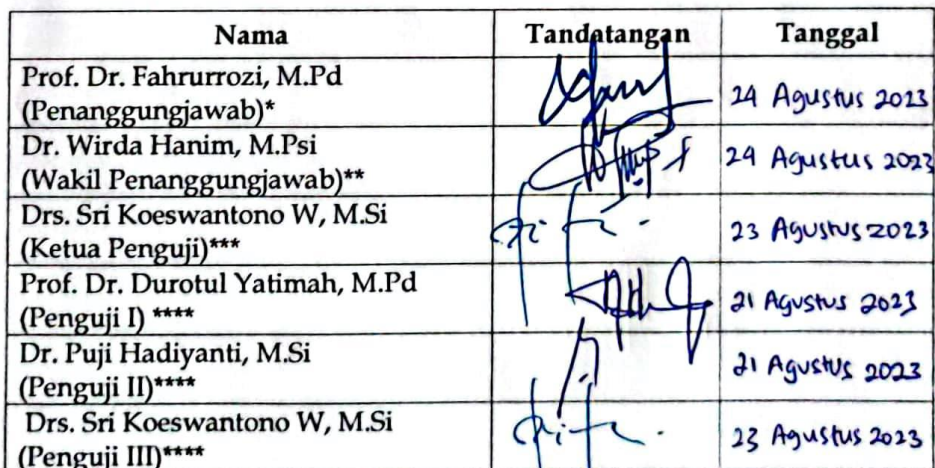 Nama Tandatangan Tanggal
Prof. Dr. Fahrurrozi, M.Pd
(Penanggungjawab)*
24 Agustus 2023
Dr. Wirda Hanim, M.Psi
(Wakil Penanggungjawab)**
24 Agustus 2023
Drs. Sri Koeswantono W, M.Si
(Ketua Penguji)***
23 Agustus 2023
Prof. Dr. Durotul Yatimah, M.Pd
(Penguji I) ****
21 Agustus 2023
Dr. Puji Hadiyanti, M.Si
(Penguji II)****
21 Agustus 2023
Drs. Sri Koeswantono W, M.Si
(Penguji III)****
23 Agustus 2023